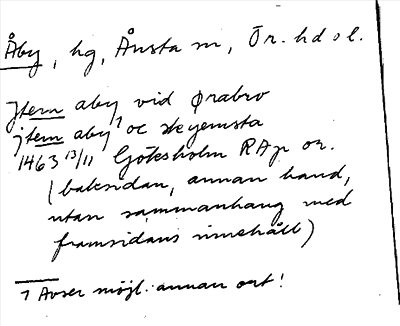 Åby, hg, Ånsta sn, Ör. hd o l.
Jtem aby vid Ørabro
jtem aby⁷ oc skyemsta
1463 13/11 Göksholm RAp or.
(baksidan, annan hand,
utan sammanhang med
framsidans innehåll)
⁷ Avser möjl. annan ort!